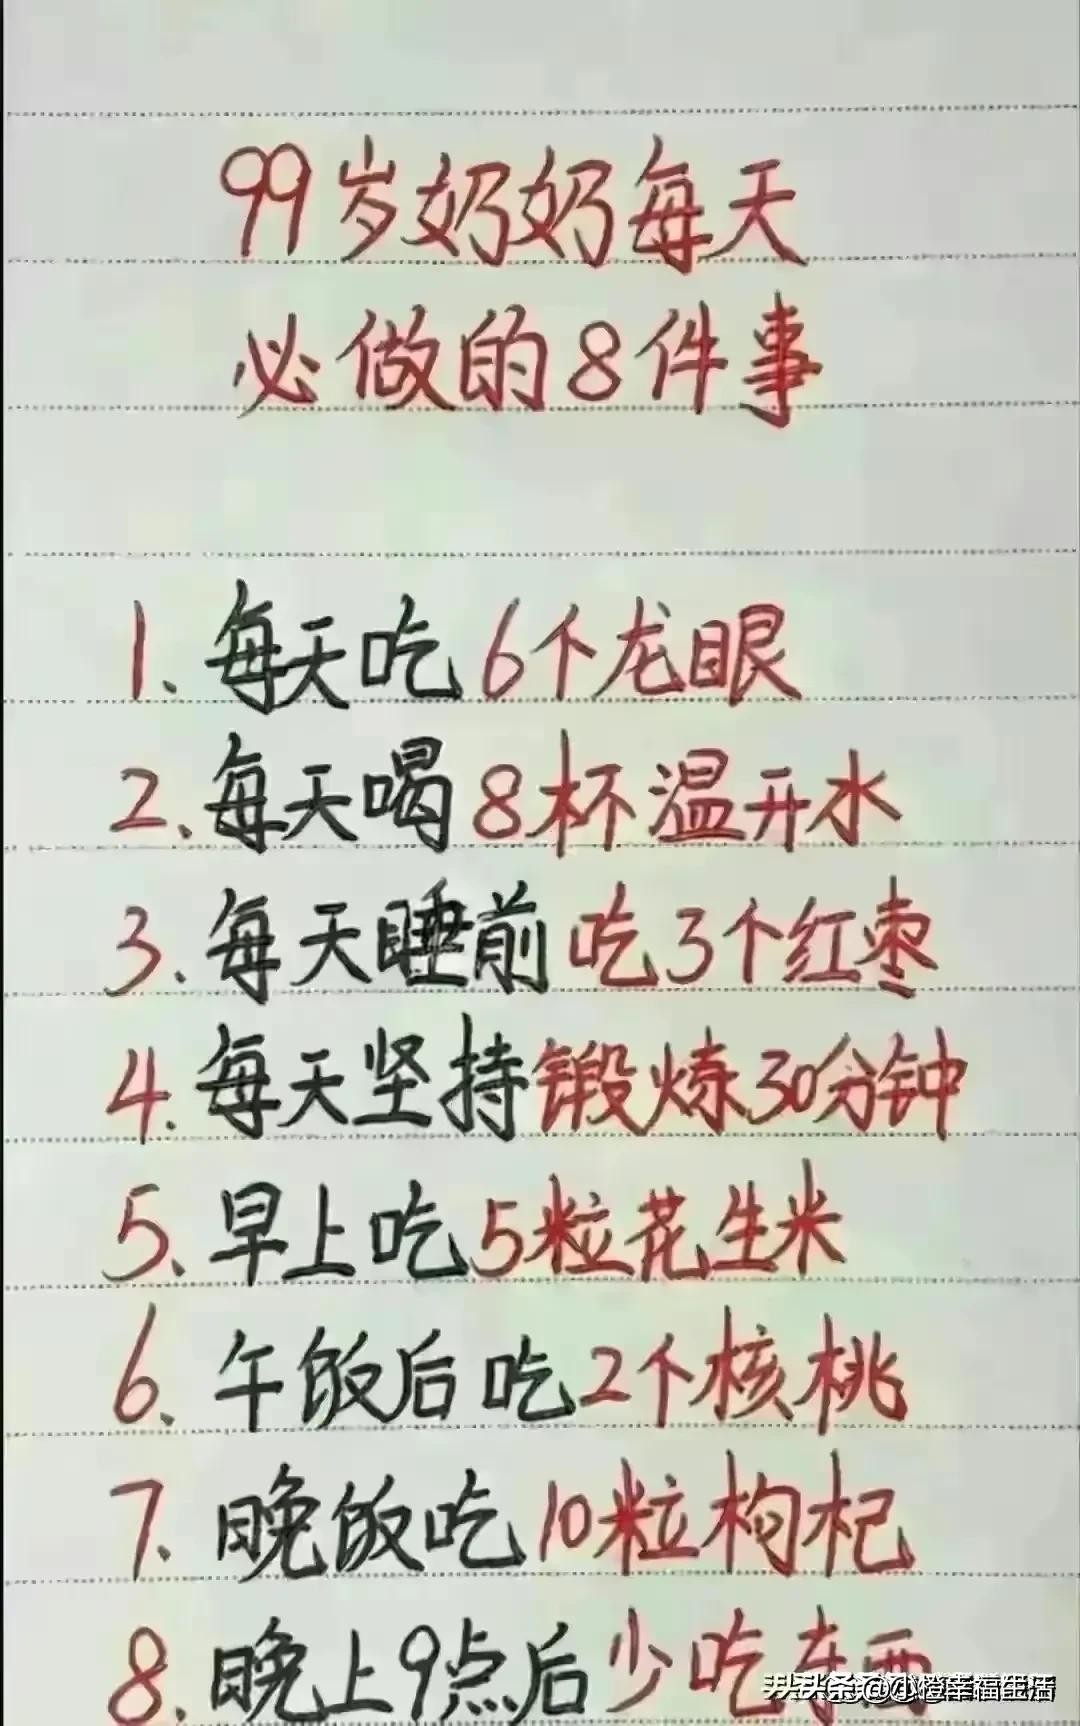 99岁奶奶每天
必做的8件事
1、每天吃6个龙眼
2、每天喝8杯温开水
3、每天睡前吃3个红枣
4、每天坚持锻炼30分钟
5、早上吃5粒花生米
6、午饭后吃2个核桃
7、晚饭吃10粒枸杞
8、晚上9点后少吃东西
头条@小橙幸福生活